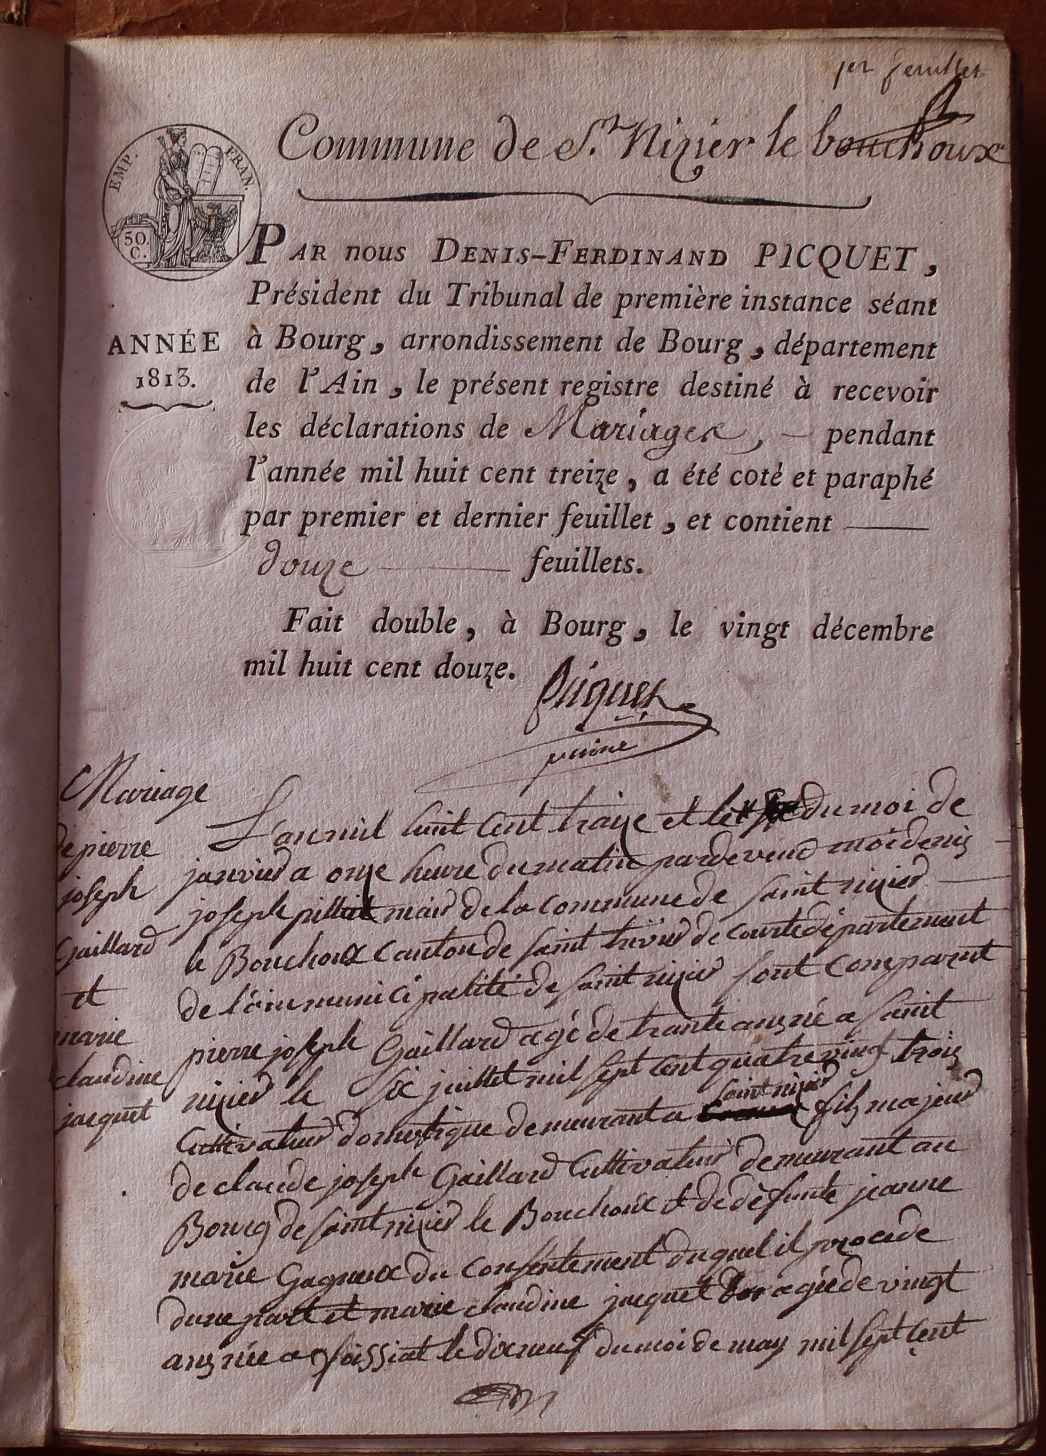 1er feuillet
Commune de St. Nizier le bouchoux
EMP. FRAN.
50. C.
PAR nous DENIS-FERDINAND PICQUET,
Président du Tribunal de première instance séant
à Bourg, arrondissement de Bourg, département
de l'Ain, le présent registre destiné à recevoir
les déclarations de Mariages, — pendant
l'année mil huit cent treize, a été coté et paraphé
par premier et dernier feuillet, et contient —
douze — feuillets.
Fait double, à Bourg, le vingt décembre
mil huit cent douze.
ANNÉE
1813.
Picquet
Mariage
de pierre
joseph
Gaillard
et
marie
claudine
jacquet
L'an mil huit cent traize et le du moi de
janvier a onze heure du matin pardevend moi denis
joseph pillat mair de la commune de saint nizier
le Bouchoux canton de saint trivier de courte département
de l'ain municipalité de saint nizier sont comparut
pierre joseph Gaillard agé de trante ans né a saint
nizier le six juillet mil sept cent quatre vingt trois
Cultivateur domestique demeurant a saint nizier fils majeur
de claude joseph Gaillard Cultivateur demeurant au
Bourg de saint nizier le Bouchoux et de défunte jeanne
marie Gagneux du consentement duquel il procede
dune part et marie claudine jacquet agée de vingt
ans née a foissiat le dix neuf du moi de may mil sept cent